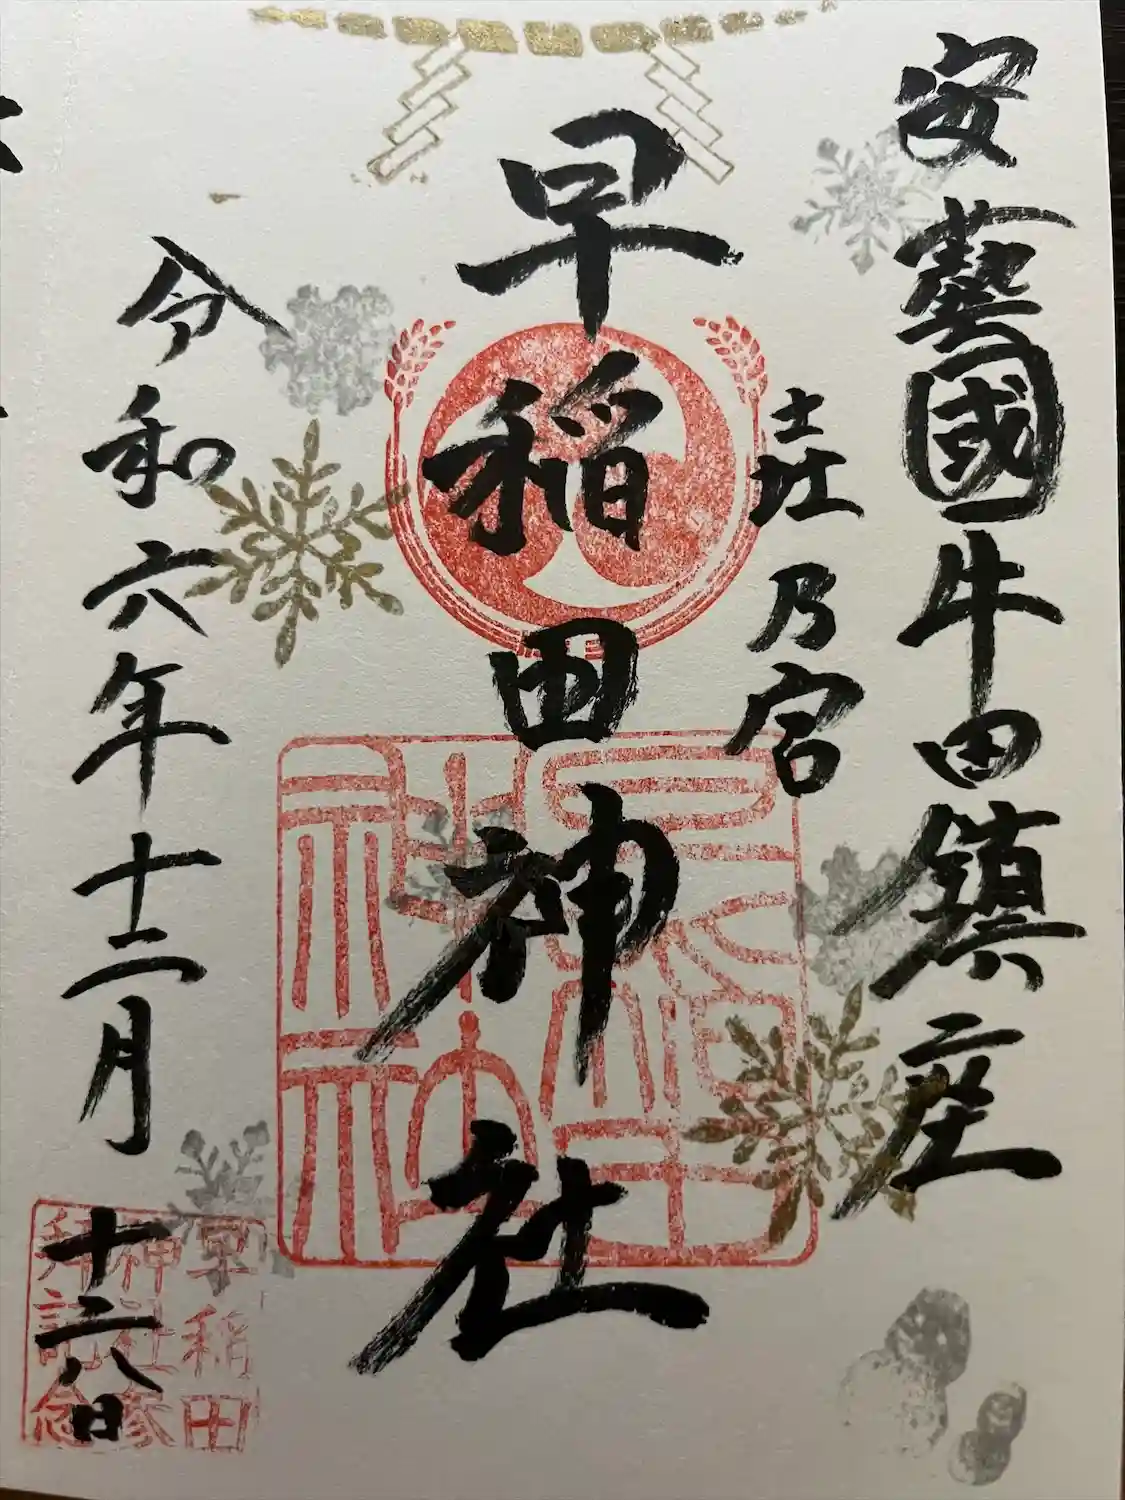 安藝國牛田鎮座
乃宮
早稲田神社
早稲田
神社
令和六年十二月
十六日
早稲田
神社参
拝記念